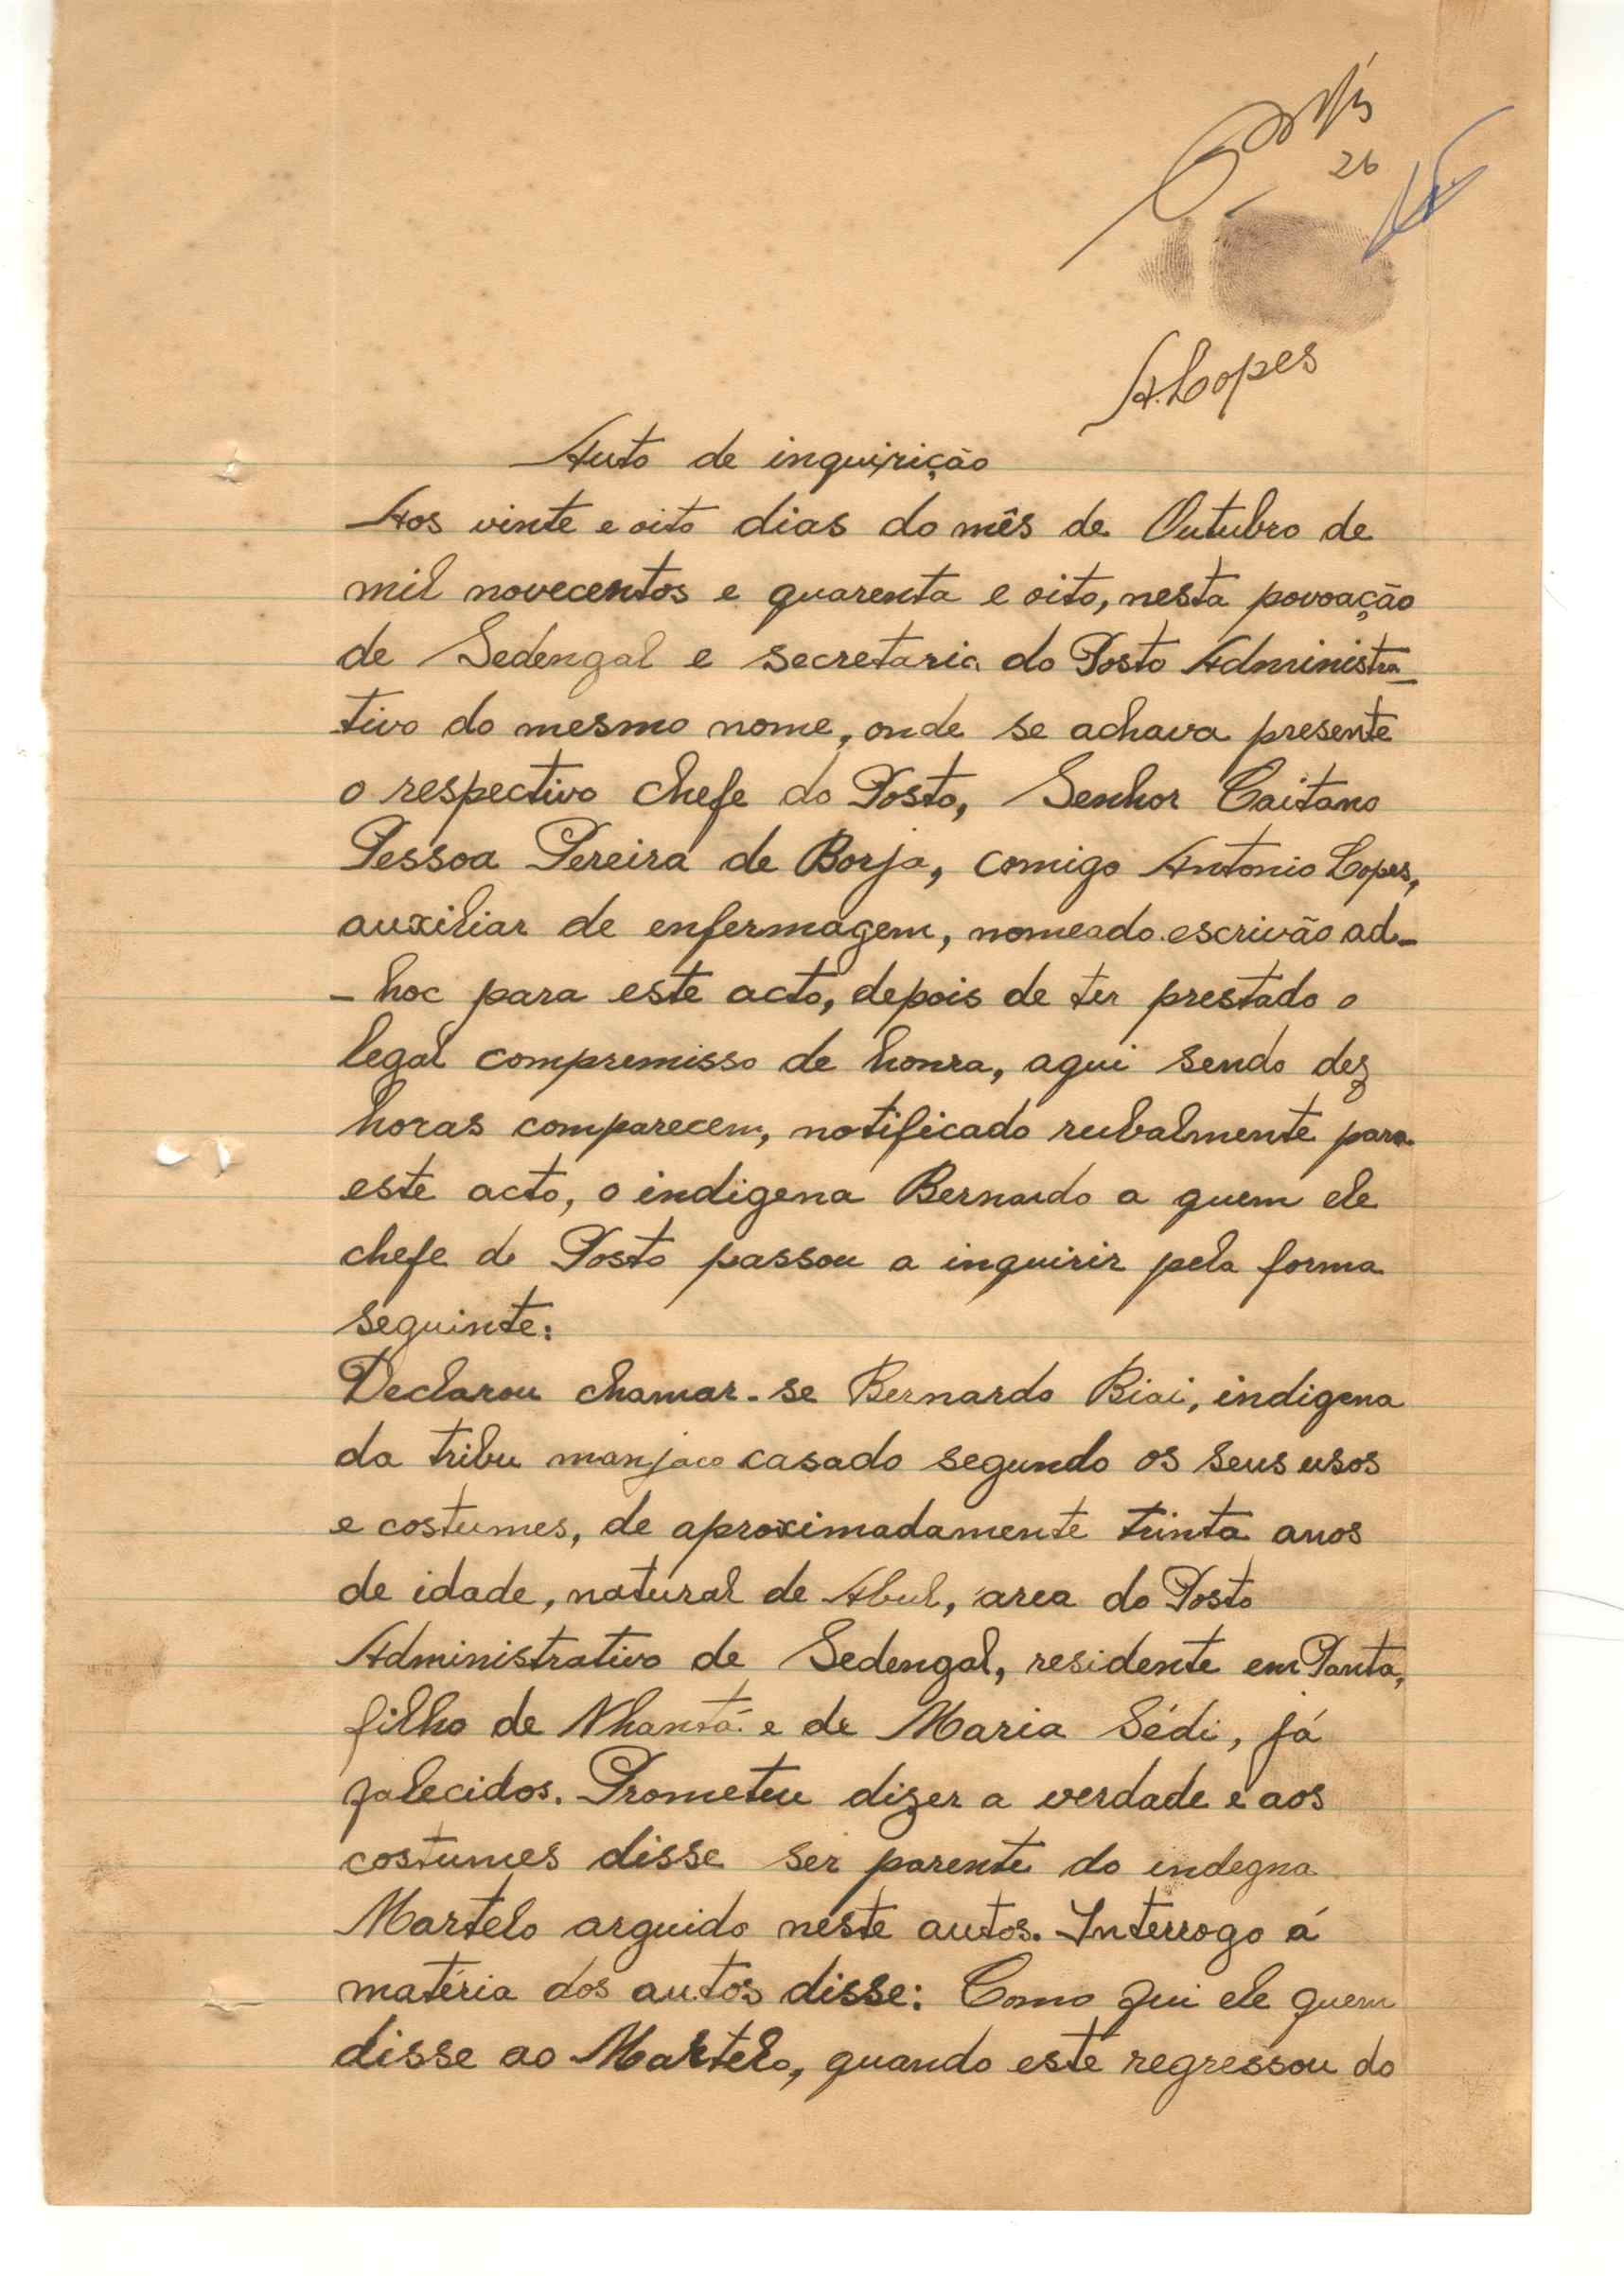 26
A. Lopes
Auto de inquirição
Aos vinte e oito dias do mês de Outubro de
mil novecentos e quarenta e oito, nesta povoação
de Sedengal e secretaria do Posto Administra_
tivo do mesmo nome, onde se achava presente
o respectivo chefe do Posto, Senhor Caitano
Pessoa Pereira de Borja, comigo Antonio Lopes,
auxiliar de enfermagem, nomeado escrivão ad-
- hoc para este acto, depois de ter prestado o
legal compremisso de honra, aqui sendo dez
horas comparecem, notificado rubalmente para
este acto, o indigena Bernardo a quem ele
chefe do Posto passou a inquirir pela forma
seguinte:
Declarou chamar-se Bernardo Biai, indigena
da tribu manjaco casado segundo os seus usos
e costumes, de aproximadamente trinta anos
de idade, natural de Abul, área do Posto
Administrativo de Sedengal, residente em Panta,
filho de Nhantá e de Maria Sédi, já
falecidos. Prometeu dizer a verdade e aos
costumes disse ser parente do indegna
Martelo arguido neste autos. Interrogo á
matéria dos autos disse: Como fui ele quem
disse ao Martelo, quando este regressou do